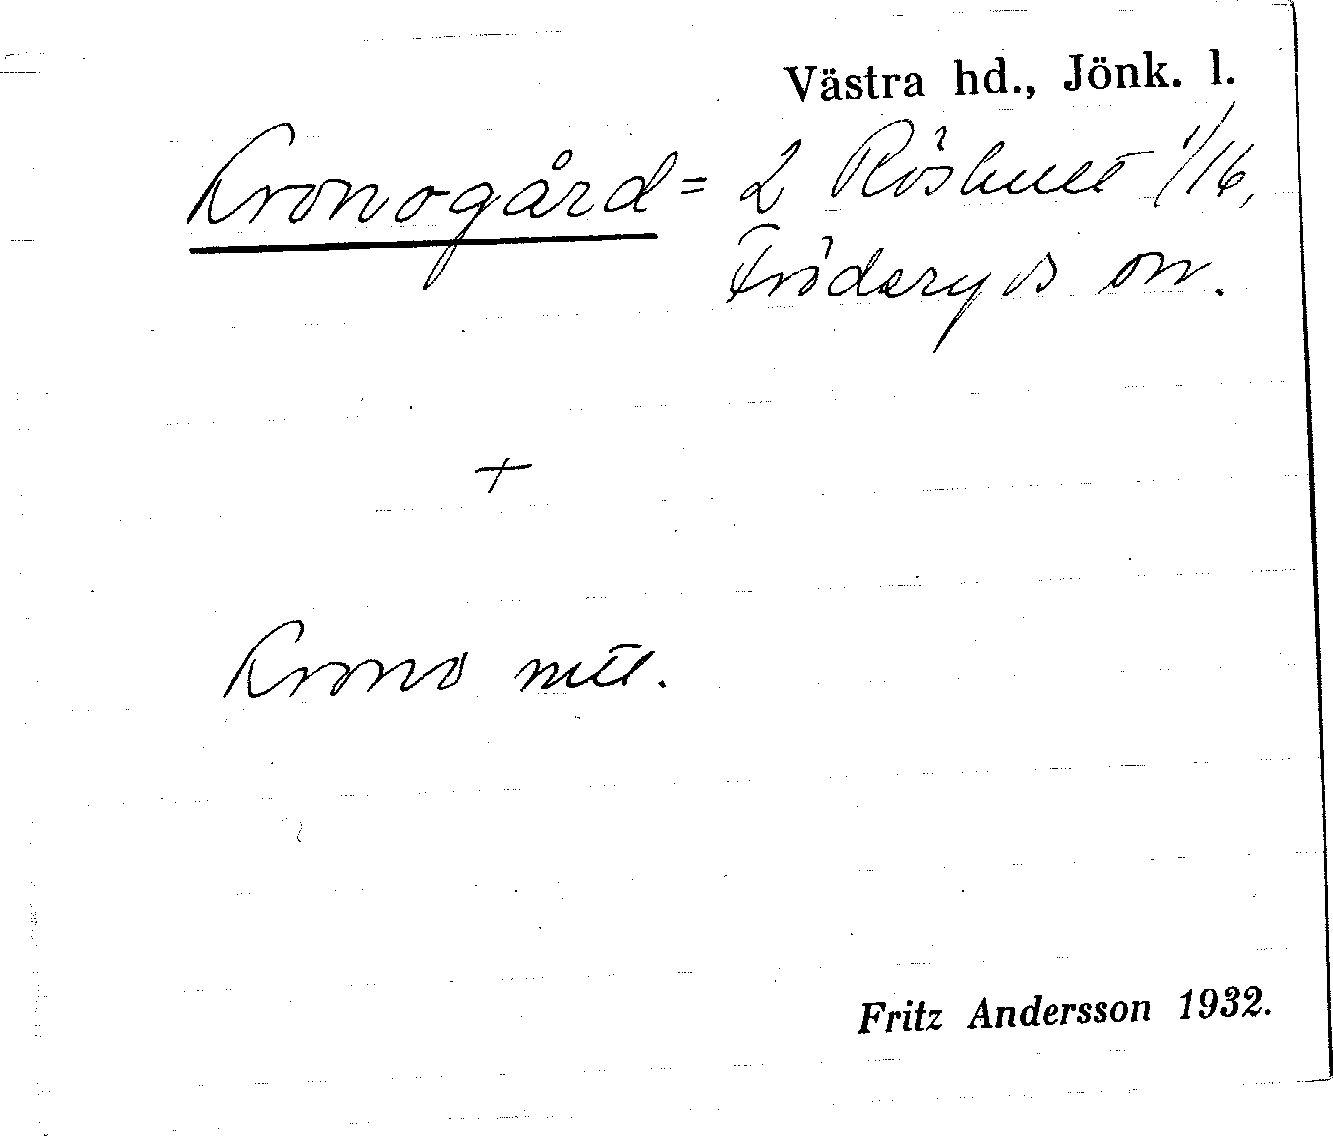 Västra hd., Jönk. l.
Kronogård = 2 Röshult 1/16,
Fröderyds sn.
+
Krono mtl.
Fritz Andersson 1932.